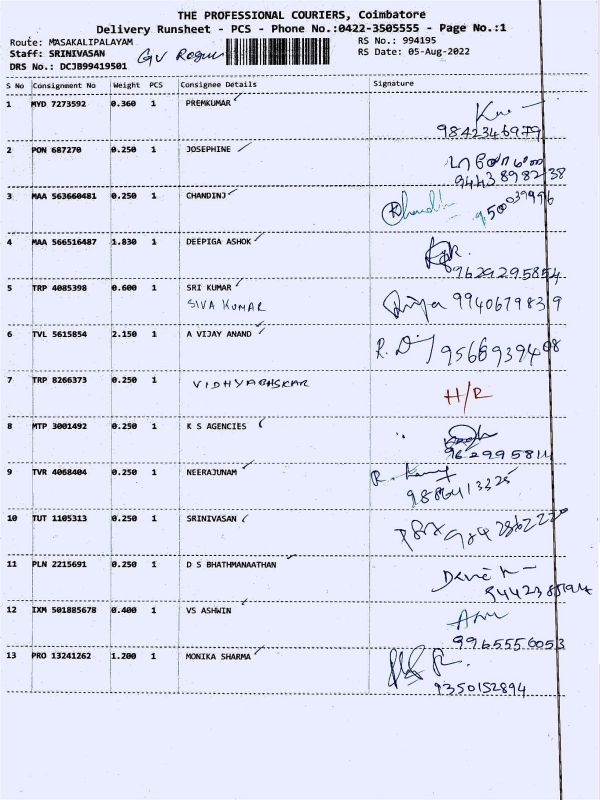 THE PROFESSIONAL COURIERS, Coimbatore
Delivery Runsheet - PCS - Phone No.:0422-3505555 - Page No.:1
Route: MASAKALIPALAYAM RS No.: 994195
Staff: SRINIVASAN GV RS Date: 05-Aug-2022
DRS No.: DCJB99419501
S No Consignment No Weight PCS Consignee Details Signature
1 MYD 7273592 0.360 1 PREMKUMAR
9842346979
2 PON 687270 0.250 1 JOSEPHINE
9443898238
3 MAA 563660481 0.250 1 CHANDINJ
4 MAA 566516487 1.830 1 DEEPIGA ASHOK
9629295854
5 TRP 4085398 0.600 1 SRI KUMAR
SIVA KUMAR Priya 9940679839
6 TVL 5615854 2.150 1 A VIJAY ANAND
7 TRP 8266373 0.250 1 VIDHYABHSKAR
H/R
8 MTP 3001492 0.250 1 K S AGENCIES
9629995814
9 TVR 4068404 0.250 1 NEERAJUNAM
10 TUT 1105313 0.250 1 SRINIVASAN
11 PLN 2215691 0.250 1 D S BHATHMANAATHAN
12 IXM 501885678 0.400 1 VS ASHWIN
9965556053
13 PRO 13241262 1.200 1 MONIKA SHARMA
9350152894